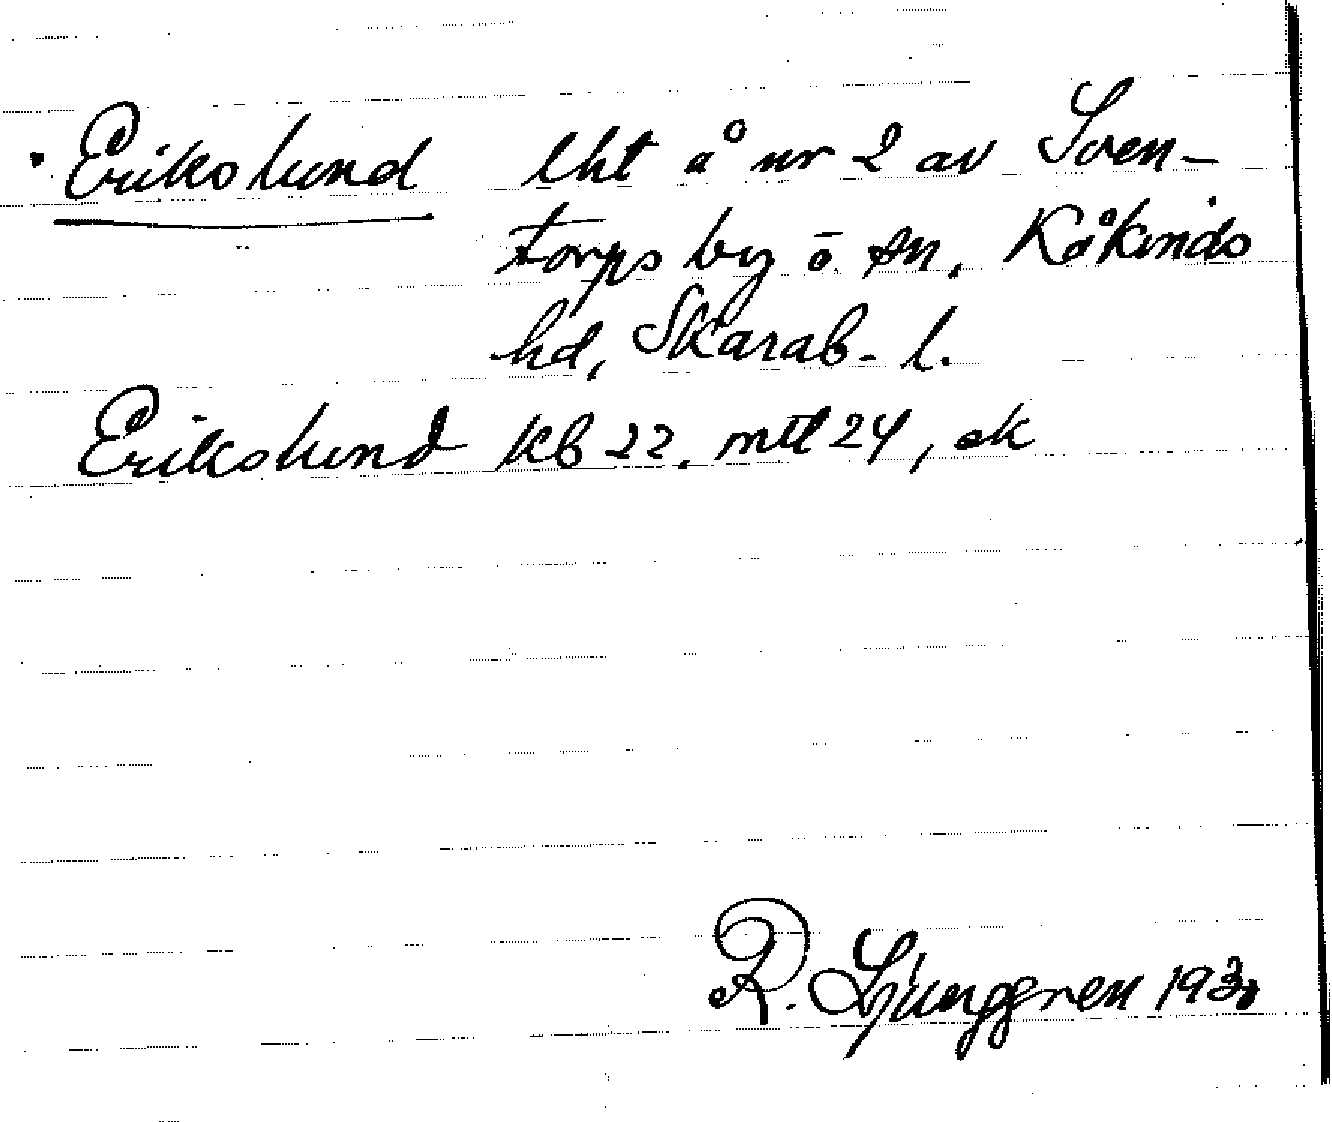 Erikslund lht å nr 2 av Sven-
torps by o. sn, Kåkinds
hd, Skarab. l.
Erikslund kb 22, mtl 24, ek
R. Ljunggren 1930